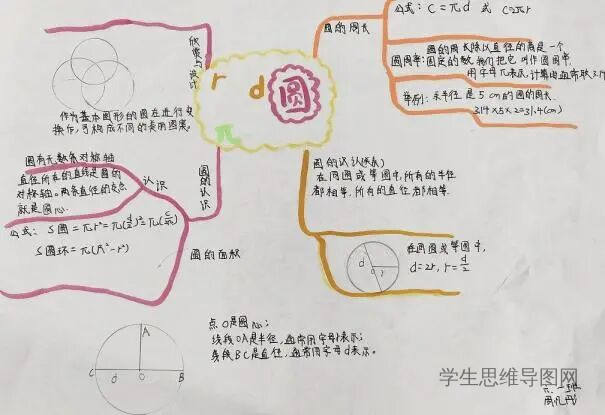 圆
r
d
圆的周长
公式: C=πd 或 C=πr
圆的周长除以直径的商是一个
圆周率: 固定的数,我们把它叫作圆周率,
用字母π表示,计算时通常取3.14
举例: 求半径是5cm的圆的周长.
3.14×5×2=31.4(cm)
欣赏与设计
作为基本图形的圆在进行
操作,可构成不同的美丽图案.
圆的认识
认识
圆有无数条对称轴
直径所在的直线是圆的
对称轴。两条直径的交点
就是圆心.
圆的面积
公式: S圆=πr²=π(d/2)²=π(C/2π)²
S圆环=π(R²-r²)
圆的认识
在同圆或等圆中,所有的半径
都相等,所有的直径都相等.
d
o
r
在同圆或等圆中,
d=2r, r=d/2
A
C
d
O
B
点O是圆心;
线段OA是半径,通常用字母r表示;
线段BC是直径,通常用字母d表示。
学生思维导图网